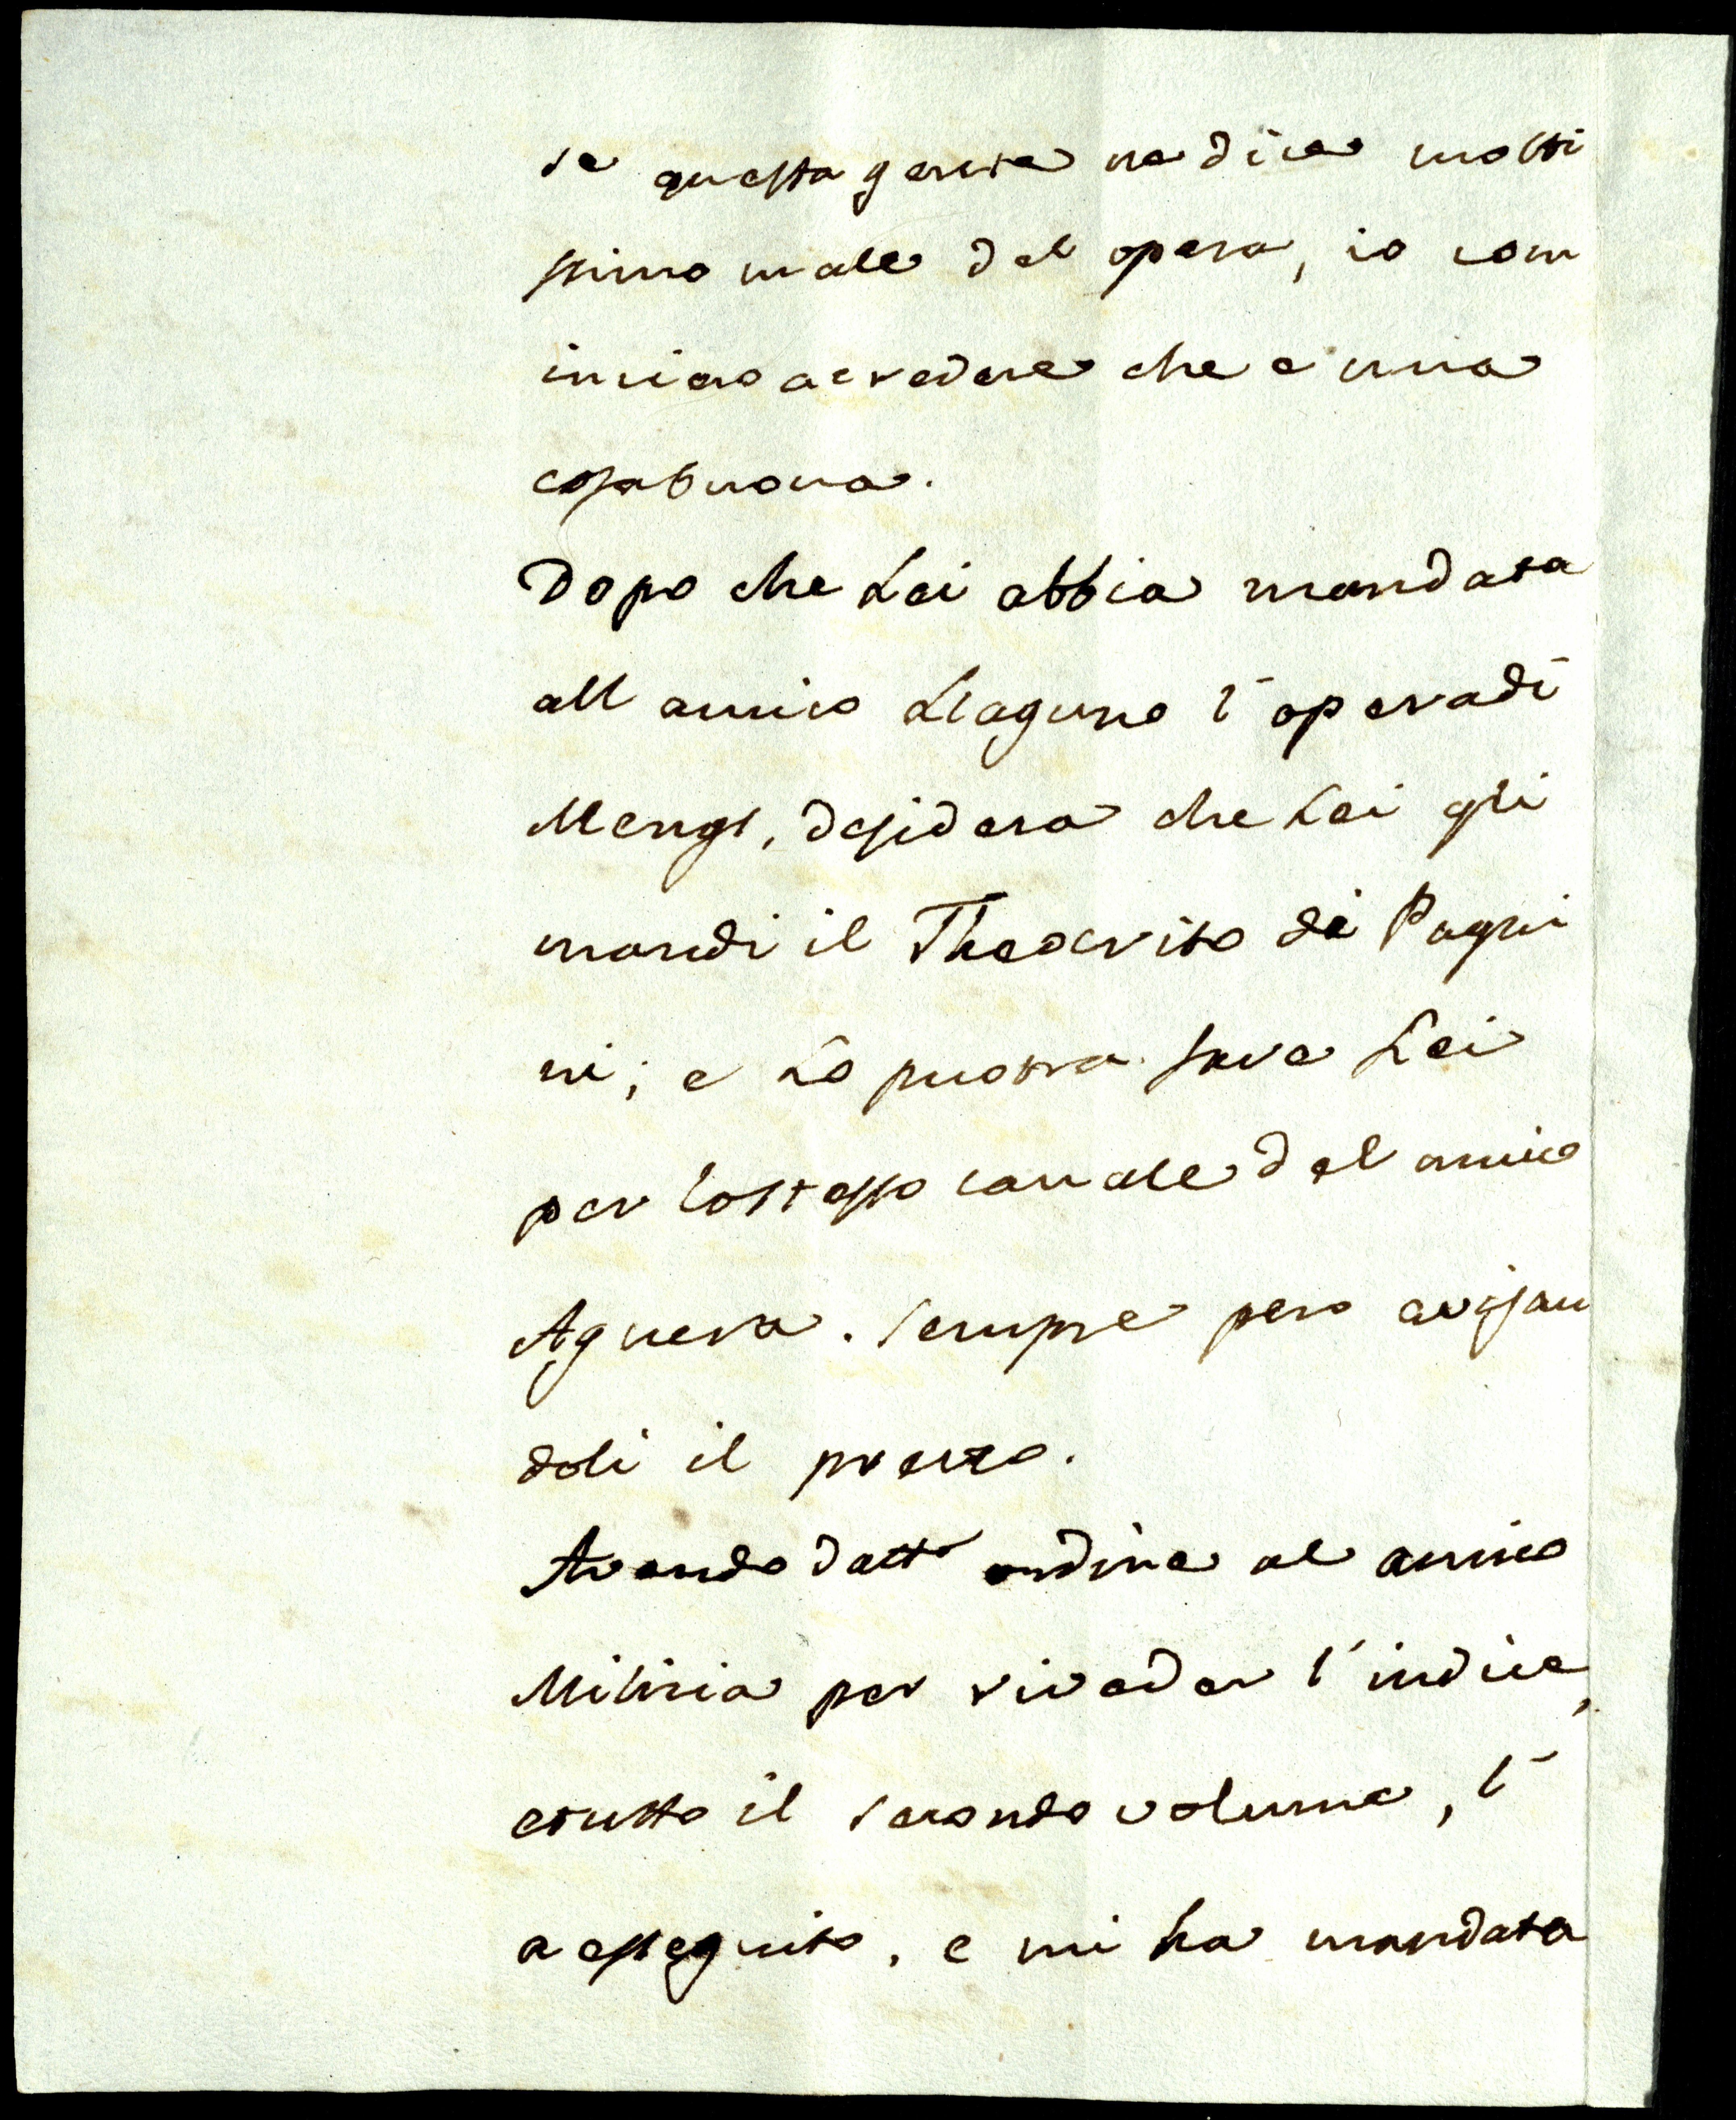 se questa gente ne dice molti
ssimo male del opera, io com
incio a credere che e una
cosa buona.
Dopo che Lei abbia mandata
all amico Llaguno l'opera di
Mengs, desidera che Lei gli
mandi il Theocrito di Pagni
ni; e Lo puotra fare Lei
per lo stesso canale del amico
Aguera. Sempre pero avisan
doli il prezzo.
Avendo datto ordine al amico
Milizia per riveder l'indice,
e tutto il secondo volume, l'
a esseguito, e mi ha mandata